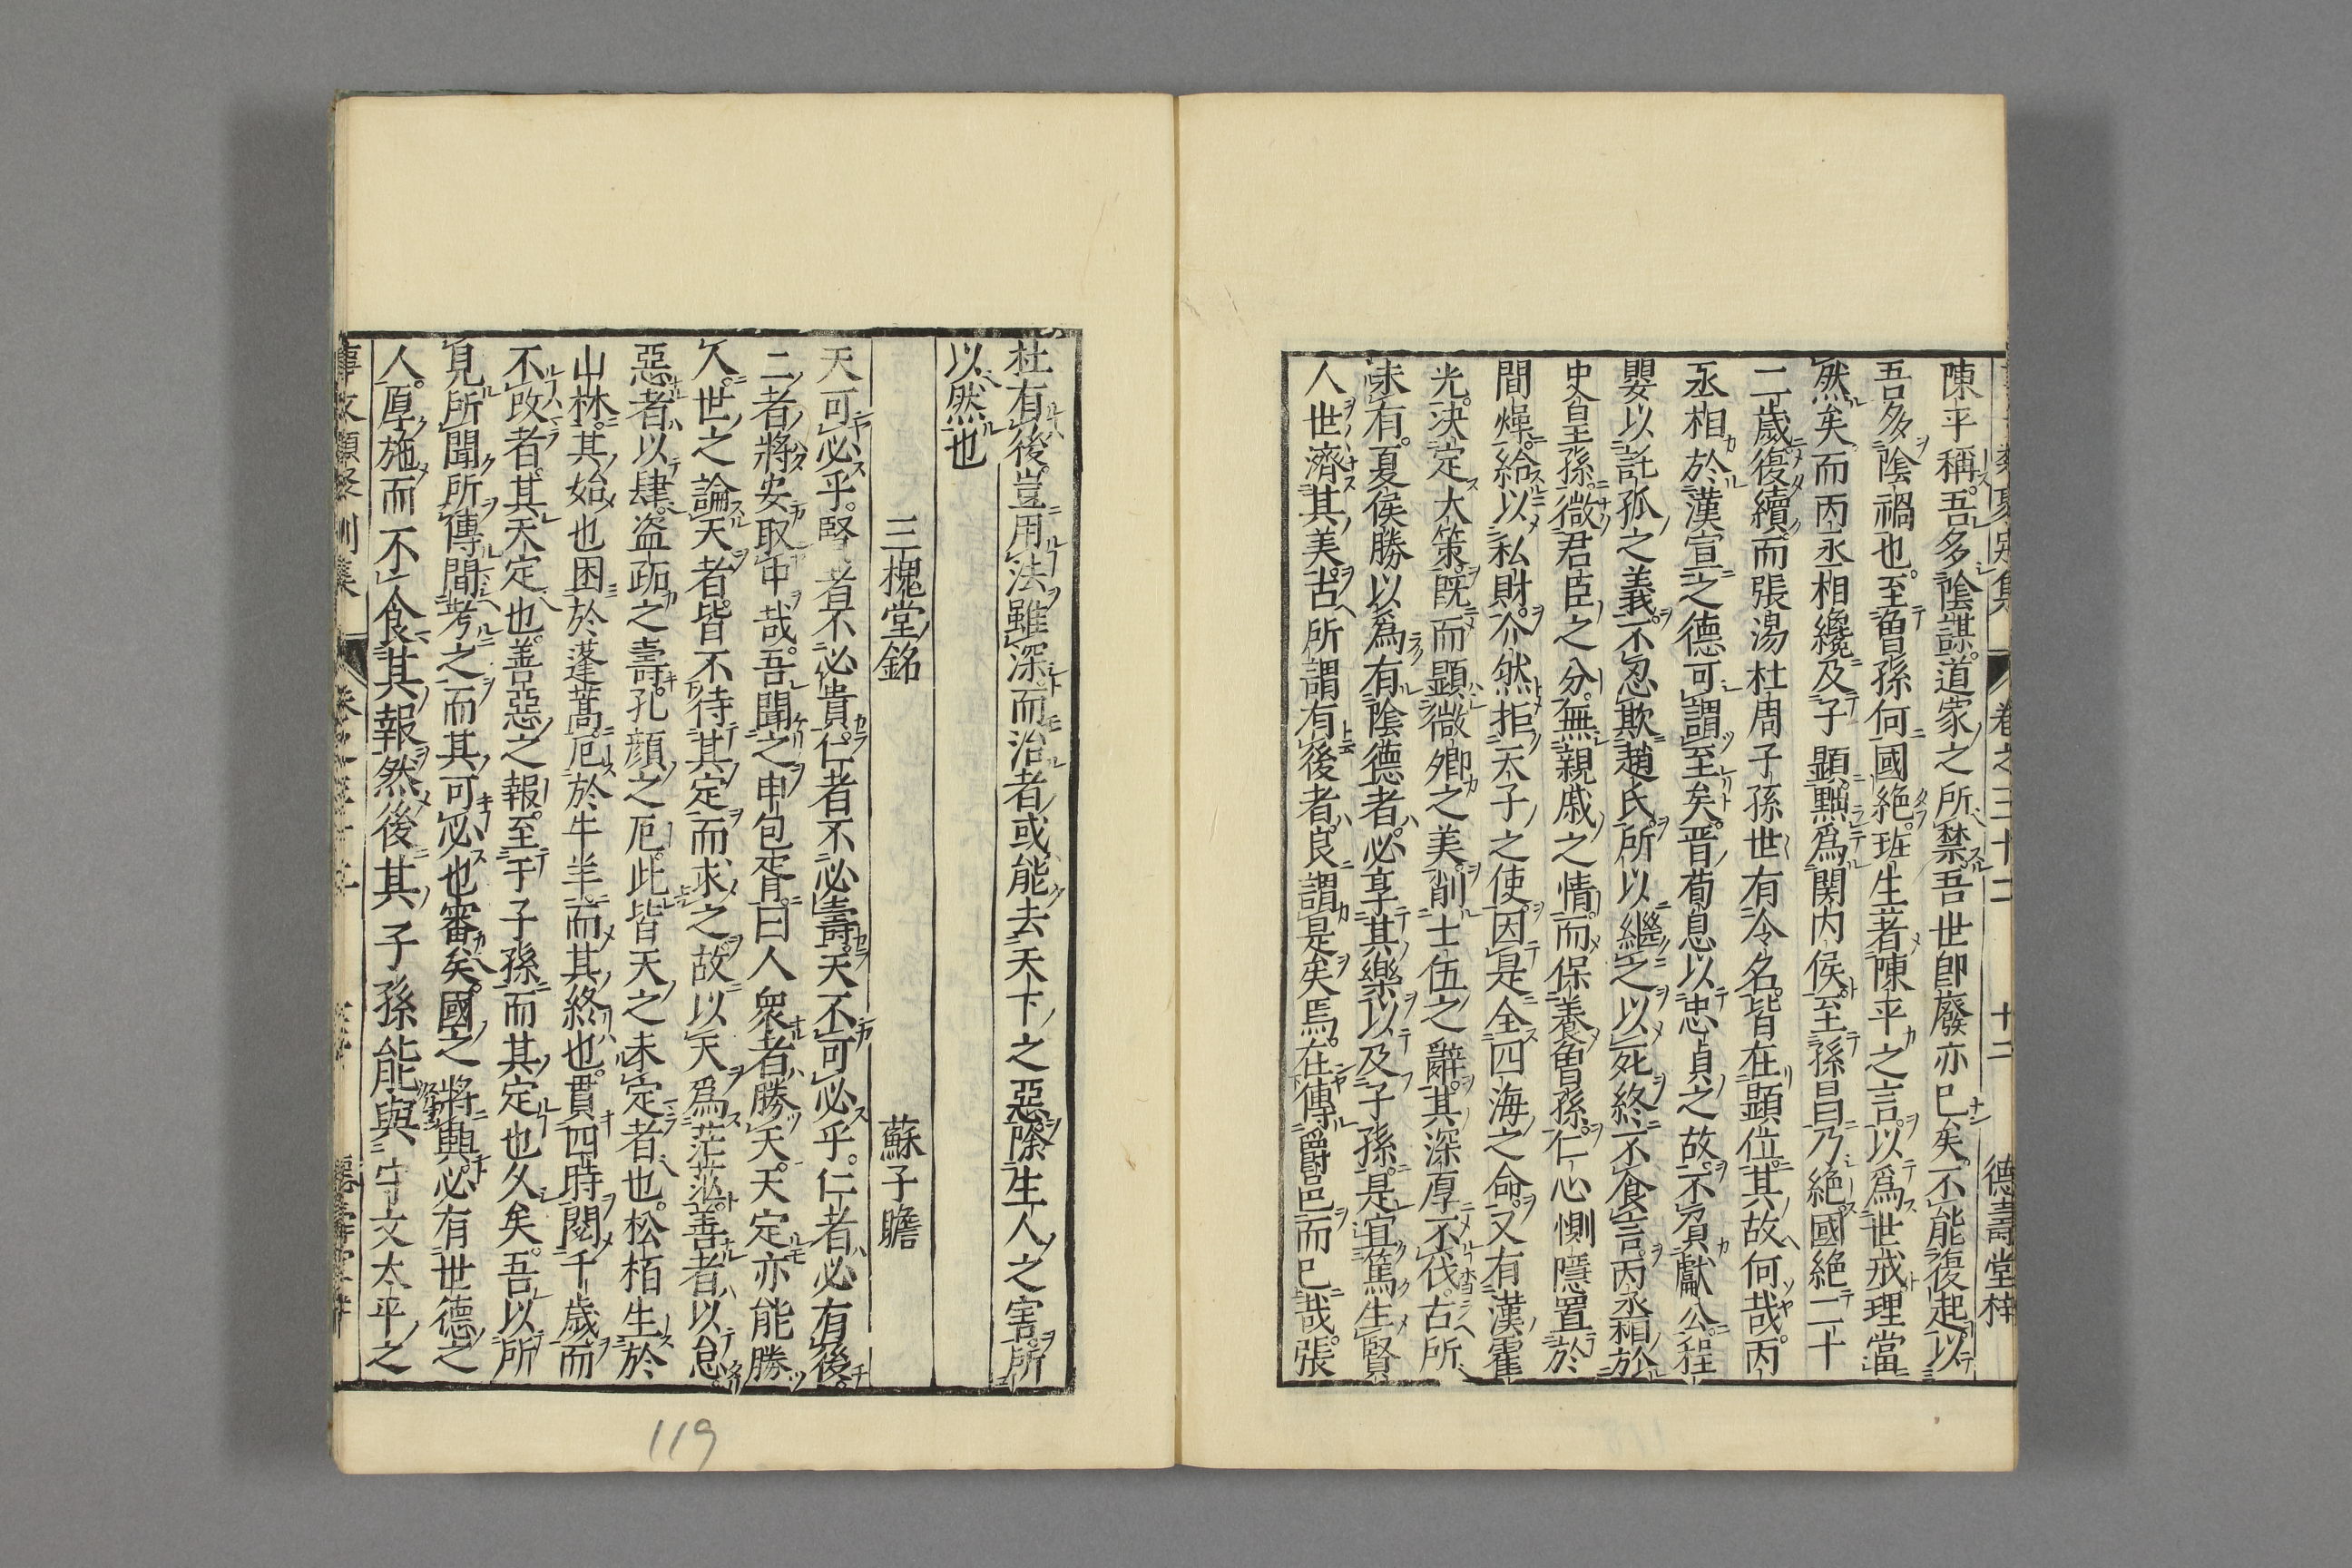 卷之三十二 十二 德壽堂梓
陳平稱吾多陰謀道家之所禁吾世卽廢亦已矣不能復起以
吾多陰禍也至曾孫何國絕班生著陳平之言以爲世戒理當
然矣而丙丞相纔及子顯黜爲関内侯至孫昌乃絕國絕二十
二歲復續而張湯杜周子孫世有令名皆在顯位其故何哉丙
丞相於漢宣之德可謂至矣晋荀息以忠貞之故不負獻公程
嬰以託孤之義不忍欺趙氏所以繼之以死終不食言丙丞相於
史皇孫微君臣之分無親戚之情而保養曾孫仁心惻隱置於
間燥給以私財介然拒天子之使因是全四海之命又有漢霍
光决定大策既而顯微卿之美削士伍之辭其深厚不伐古所
未有夏侯勝以爲有陰德者必享其樂以及子孫是宜篤生賢
人世濟其美古所謂有後者良謂是矣焉在傳爵邑而已哉張
杜有後豈用法雖深而治者或能去天下之惡除生人之害所
以然也
三槐堂銘 蘇子瞻
天可必乎賢者不必貴仁者不必壽天不可必乎仁者必有後
二者將安取𠂻哉吾聞之申包胥曰人衆者勝天天定亦能勝
人世之論天者皆不待其定而求之故以天爲茫茫善者以怠
惡者以肆盗跖之壽孔顔之厄此皆天之未定者也松栢生於
山林其始也困於蓬蒿厄於牛羊而其終也貫四時閱千歲而
不改者其天定也善惡之報至于子孫而其定也久矣吾以所
見所聞所傳聞考之而其可必也審矣國之將興必有世德之
人厚施而不食其報然後其子孫能與守文太平之